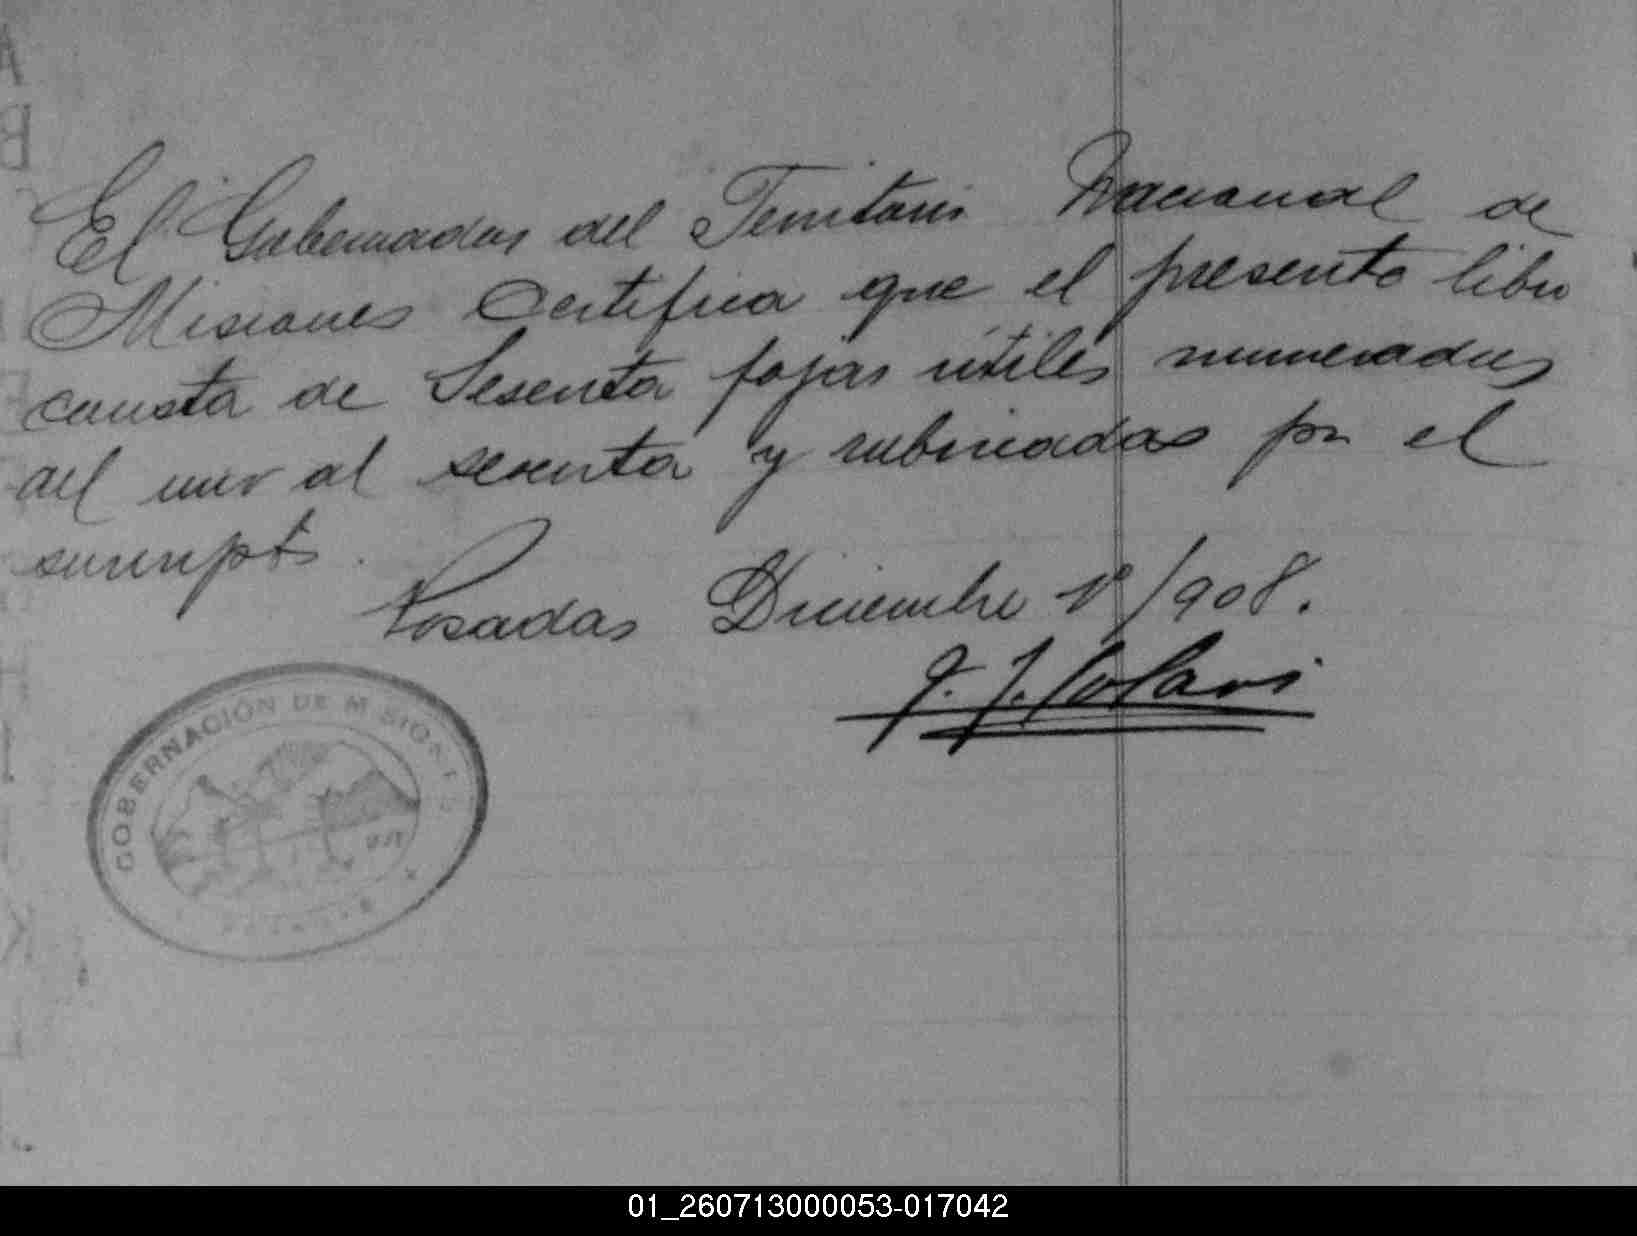 El Gobernador del Territorio Nacional de
Misiones Certifica que el presente libro
consta de Sesenta fojas útiles numeradas
del uno al sesenta y rubricadas por el
suscripto.
Posadas Diciembre 1º/908.
J. J. Lanusse
GOBERNACIÓN DE MISIONES
01_260713000053-017042